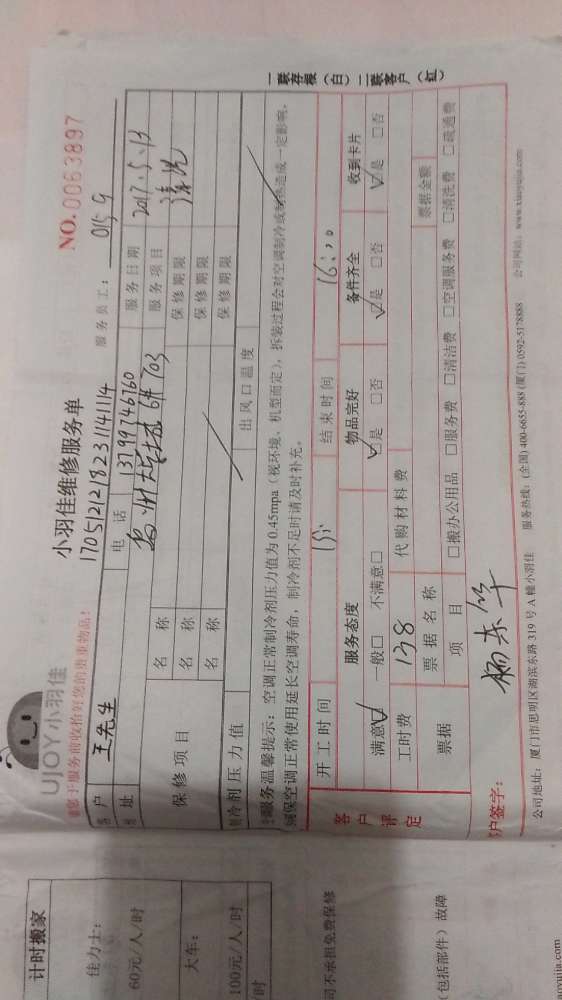 UJOY小羽佳
小羽佳维修服务单
NO.0063897
17051218231141114
服务员工：0159
请您于服务前收拾好您的贵重物品！
客户 王先生 电话 13799746760 服务日期 2017.5.13
地址 6# 703 服务项目 清洗
保修项目 名称 保修期限
名称 保修期限
名称 保修期限
制冷剂压力值 出风口温度
服务温馨提示：空调正常制冷剂压力值为0.45mpa（视环境、机型而定），拆装过程会对空调制冷或制热造成一定影响，
确保空调正常使用延长空调寿命，制冷剂不足时请及时补充。
开工时间 15: 结束时间 16:20
客户评定
服务态度 物品完好 备件齐全 收到卡片
满意☑ 一般□ 不满意□ ☑是 □否 ☑是 □否 ☑是 □否
工时费 138 代购材料费
票据 票据名称 票据金额
项目 □搬办公用品 □服务费 □清洁费 □空调服务费 □清洗费 □疏通费
客户签字：
公司地址：厦门市思明区湖滨东路319号A幢小羽佳 服务热线：(全国) 400-6655-888 (厦门) 0592-5178888 公司网站：www.xiaoyujia.com
一联存根（白）二联客户（红）
计时搬家
佳力士：
60元/人/时
大车：
100元/人/时
时
司不承担免费保修
（包括部件）故障
aoyujia.com